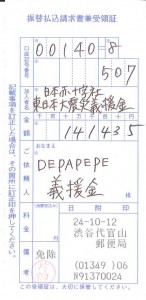 振替払込請求書兼受領証
口座記号番号
00140-8
507
加入者名
日本赤十字社
東日本大震災義援金
金額
千 百 十 万 千 百 十 円
141435
ご依頼人
おなまえ
DEPAPEPE
義援金
様
料金
備考
免除
日附印
24-10-12
渋谷代官山
郵便局
(01349)06
N91370024
記載事項を訂正した場合は、その箇所に訂正印を押してください。
この受領証は、大切に保管してください。